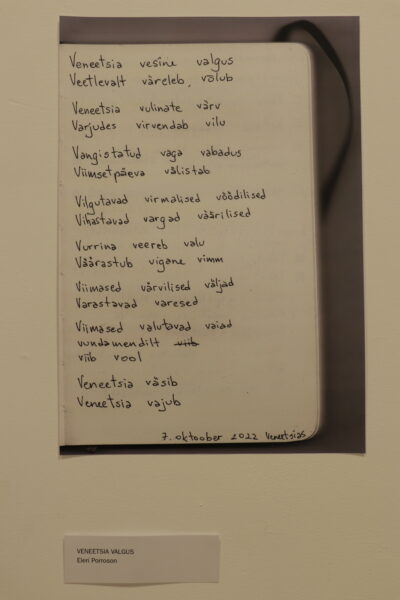 Veneetsia vesine valgus
Veetlevalt väreleb, võlub
Veneetsia vulinate värv
Varjudes virvendab vilu
Vangistatud vaga vabadus
Viimsetpäeva välistab
Vilgutavad virmalised võõdilised
Vihastavad vargad väärilised
Vurrina veereb valu
Väärastub vigane vimm
Viimased värvilised väljad
Varastavad varesed
Viimased valutavad vaiad
vundamendilt viib
viib vool
Veneetsia väsib
Veneetsia vajub
7. oktoober 2022 Veneetsias
VENEETSIA VALGUS
Eleri Porroson